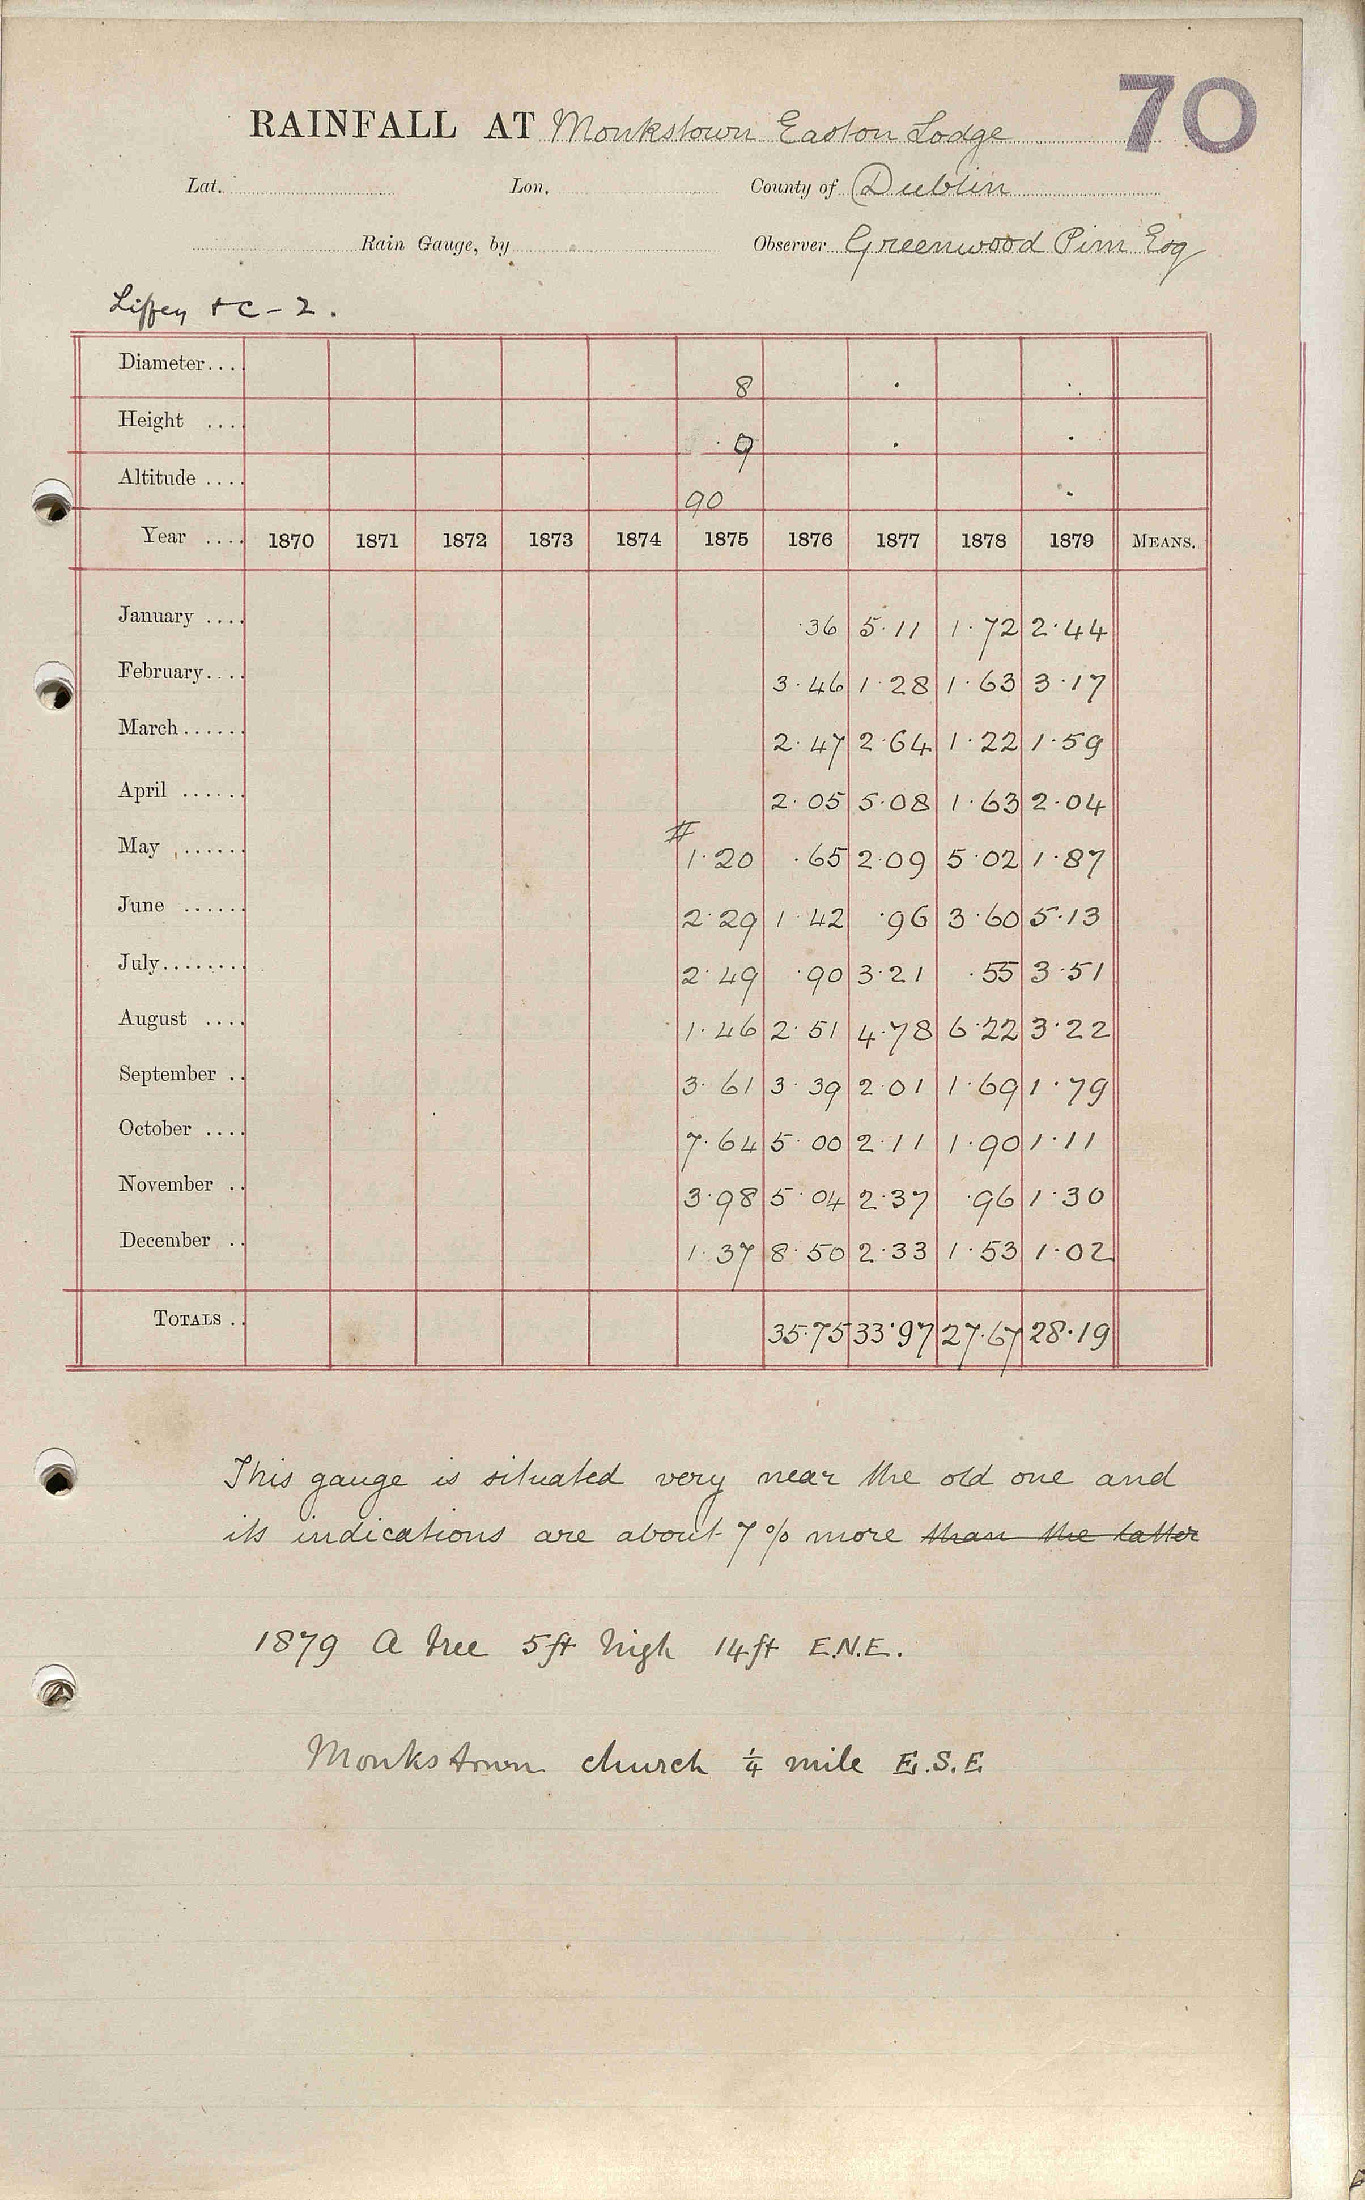 70
RAINFALL AT Monkstown Easton Lodge
Lat. Lon. County of Dublin
Rain Gauge, by Observer Greenwood Pim Esq
Liffey &c - 2.
Diameter.... 8
Height .... 9
Altitude .... 90
Year .... 1870 1871 1872 1873 1874 1875 1876 1877 1878 1879 MEANS.
January .... ·36 5·11 1·72 2·44
February.... 3·46 1·28 1·63 3·17
March...... 2·47 2·64 1·22 1·59
April ...... 2·05 5·08 1·63 2·04
May ...... # 1·20 ·65 2·09 5·02 1·87
June ...... 2·29 1·42 ·96 3·60 5·13
July........ 2·49 ·90 3·21 ·55 3·51
August .... 1·46 2·51 4·78 6·22 3·22
September .. 3·61 3·39 2·01 1·69 1·79
October .... 7·64 5·00 2·11 1·90 1·11
November .. 3·98 5·04 2·37 ·96 1·30
December .. 1·37 8·50 2·33 1·53 1·02
TOTALS .. 35·75 33·97 27·67 28·19
This gauge is situated very near the old one and
its indications are about 7% more than the latter
1879 A tree 5ft high 14ft E.N.E.
Monkstown church ¼ mile E.S.E